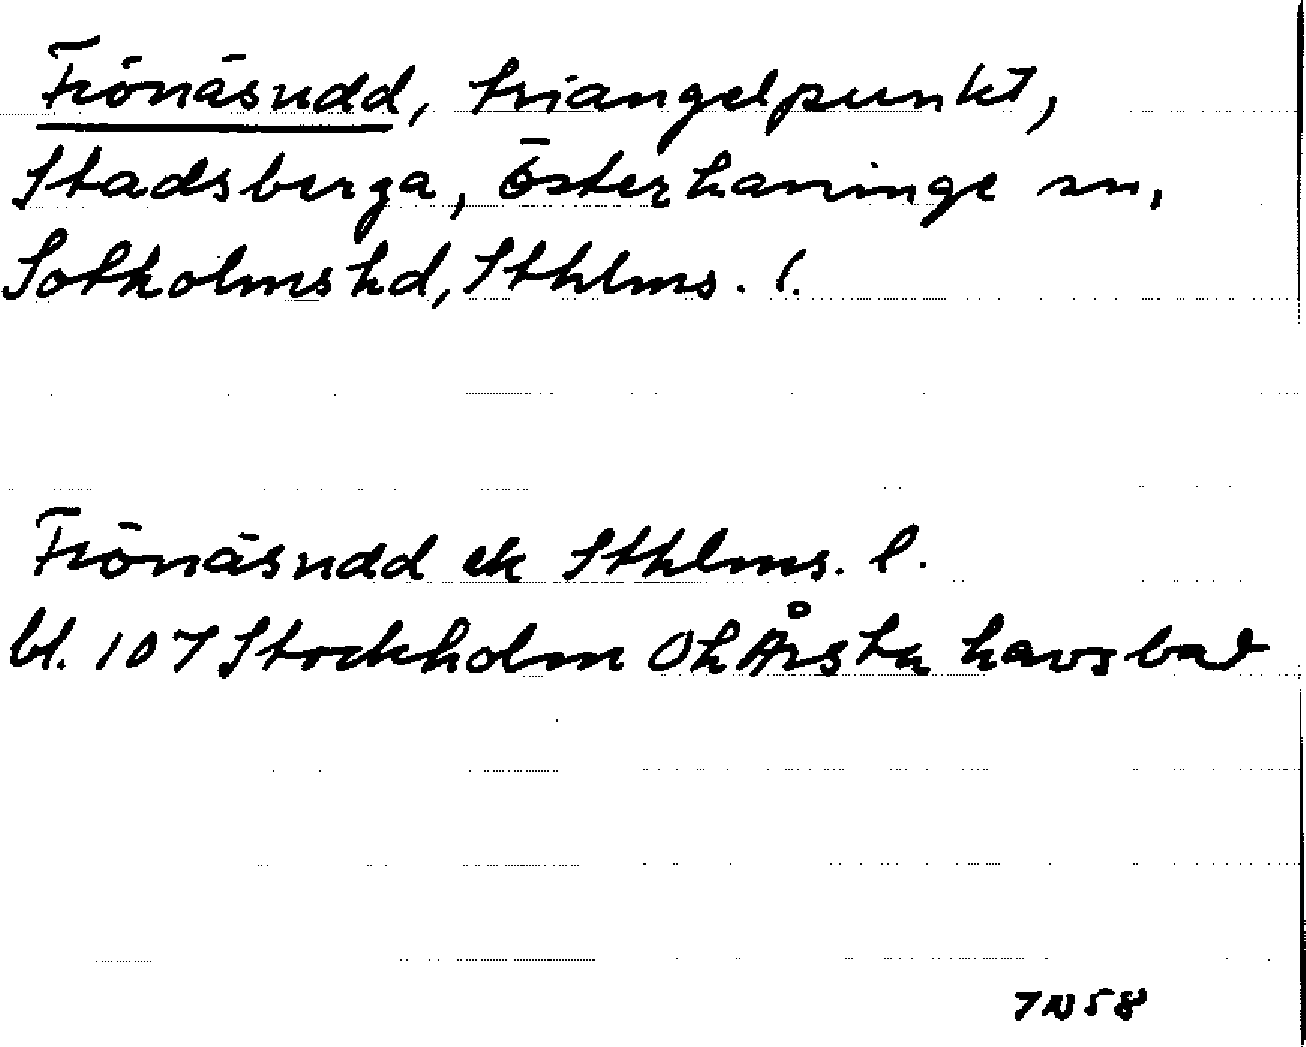 Frönäsudd, triangelpunkt,
Stadsberga, Österhaninge sn,
Sotholms hd, Sthlms. l.
Frönäsudd ek Sthlms. l.
bl. 107 Stockholm Oh Årsta havsbad
7N58